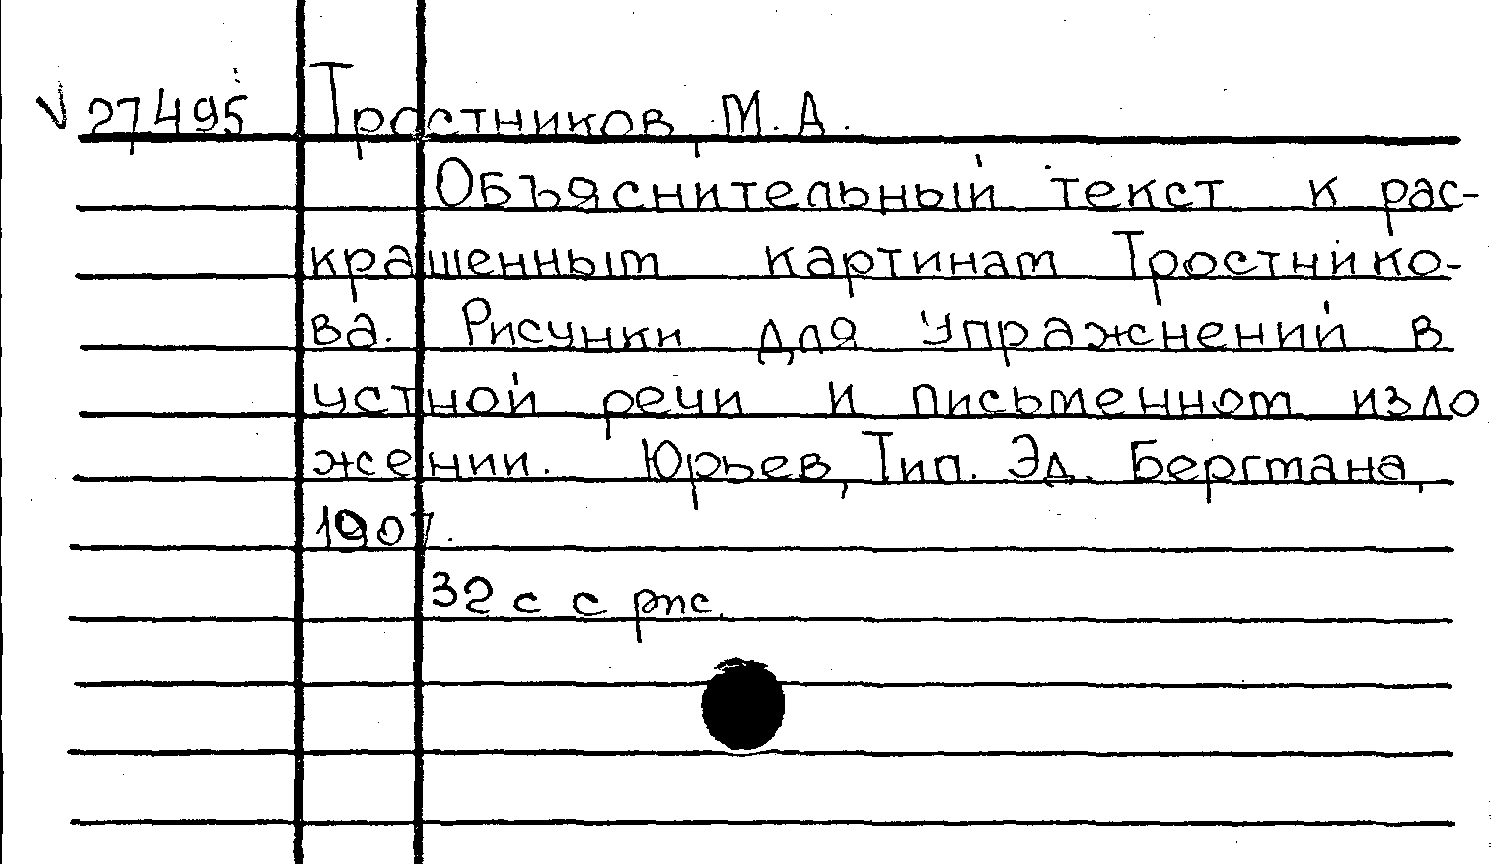 √ 27495 Тростников, М. А.
Объяснительный текст к рас-
крашенным картинам Тростнико-
ва. Рисунки для упражнений в
устной речи и письменном изло
жении. Юрьев, Тип. Эд. Бергмана,
1907.
32 с с рис.